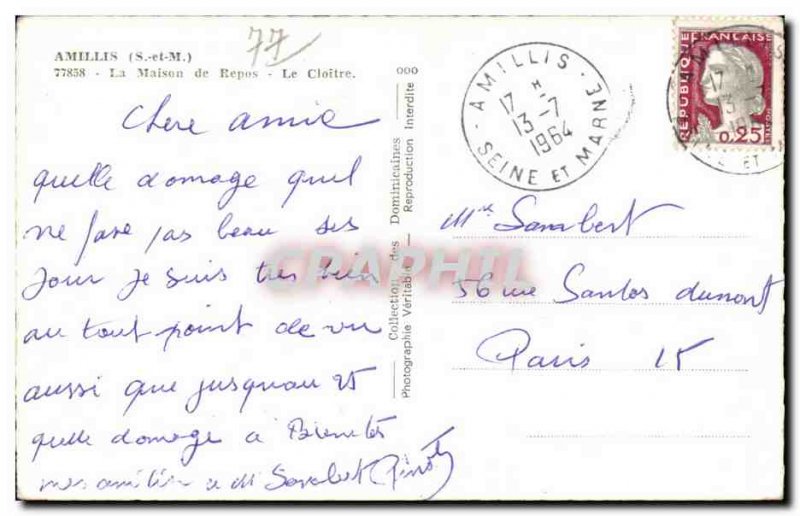 77
AMILLIS (S.-et-M.)
77858 - La Maison de Repos - Le Cloître.
chere amie
quelle domage quil
ne fase pas beau ses
jour je suis tres bien
au tout point de vu
aussi que jusquau 25
quelle domage a Bientot
mes amitier a M
Collection des Dominicaines 000
Photographie Véritable - Reproduction Interdite
AMILLIS
17 H
13-7
1964
SEINE ET MARNE
REPUBLIQUE FRANÇAISE
0,25
17
13-7
Lambert
56 rue Santos dumont
Paris 15
CPAPHIL